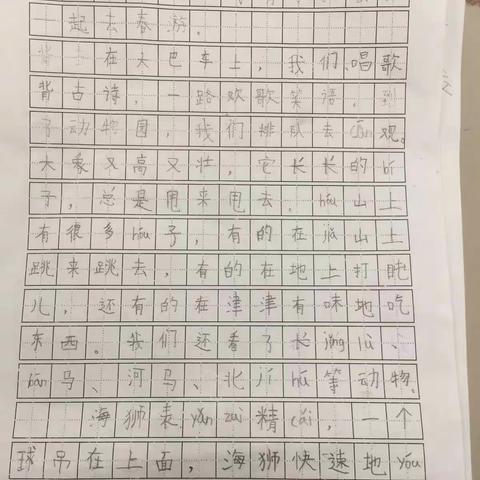 一起去春游。
在大巴车上，我们唱歌
背古诗，一路欢歌笑语，到
了动物园，我们排队去cān观。
大象又高又壮，它长长的bí
子，总是甩来甩去。hóu山上
有很多hóu子，有的在jiǎ山上
跳来跳去，有的在地上打盹
儿，还有的在津津有味地吃
东西。我们还看了长jǐng lù、
bān马、河马、北jí hú等动物。
海狮表yǎn zuì精cǎi，一个
球吊在上面，海狮快速地yóu